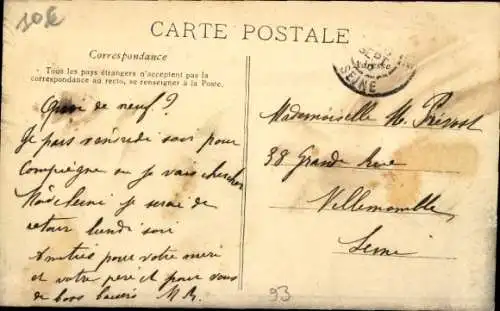 10€
CARTE POSTALE
Correspondance
Tous les pays étrangers n'acceptent pas la
correspondance au recto, se renseigner à la Poste.
Adresse
SEINE
Quoi de neuf?
Je pars vendredi soir pour
Compiègne ou je vais chercher
Madeleine je serai de
retour lundi soir
Amitiés pour votre mère
et votre père et pour vous
de bons baisers M R
Mademoiselle M. Prévost
38 Grande Rue
Villemomble
Seine
93